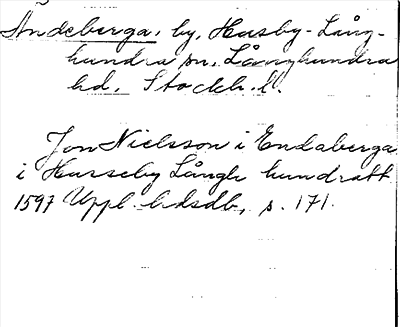 Ändeberga, by, Husby-Lång-
hundra sn, Långhundra
hd, Stockh. l.
Jon Nielsson i Endaberga
i Husseby Långh hundratt
1597 Uppl hdsdb, s. 171.